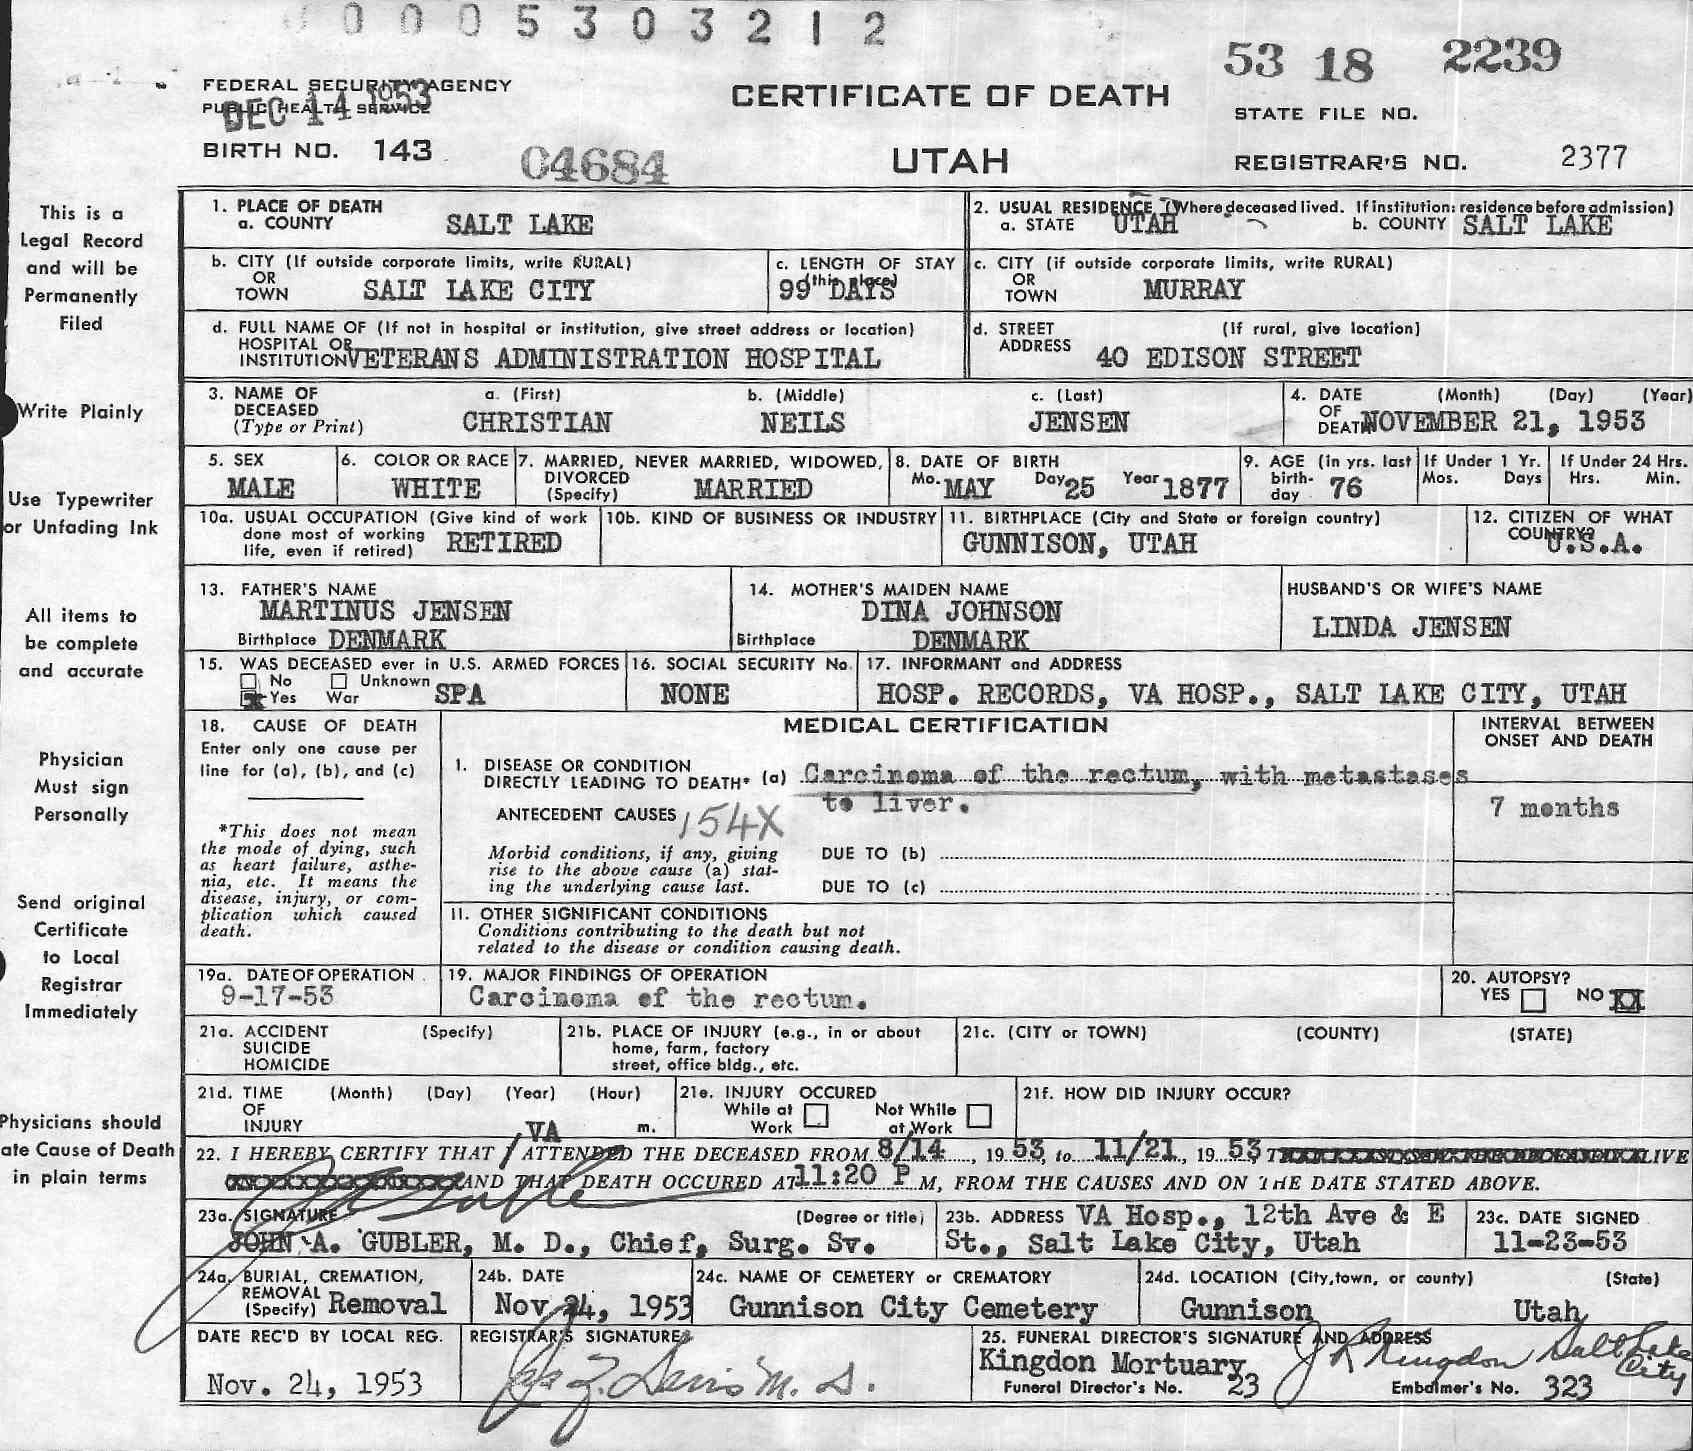 0005303212
53 18 2239
FEDERAL SECURITY AGENCY
PUBLIC HEALTH SERVICE
DEC 14 1953
CERTIFICATE OF DEATH
STATE FILE NO.
BIRTH NO. 143
C4684
UTAH
REGISTRAR'S NO. 2377
This is a
Legal Record
and will be
Permanently
Filed
Write Plainly
Use Typewriter
or Unfading Ink
All items to
be complete
and accurate
Physician
Must sign
Personally
Send original
Certificate
to Local
Registrar
Immediately
Physicians should
ate Cause of Death
in plain terms
1. PLACE OF DEATH
a. COUNTY SALT LAKE
2. USUAL RESIDENCE (Where deceased lived. If institution: residence before admission)
a. STATE UTAH b. COUNTY SALT LAKE
b. CITY (If outside corporate limits, write RURAL)
OR
TOWN SALT LAKE CITY
c. LENGTH OF STAY
(this place)
99 DAYS
c. CITY (if outside corporate limits, write RURAL)
OR
TOWN MURRAY
d. FULL NAME OF (If not in hospital or institution, give street address or location)
HOSPITAL OR
INSTITUTION VETERANS ADMINISTRATION HOSPITAL
d. STREET (If rural, give location)
ADDRESS 40 EDISON STREET
3. NAME OF a. (First) b. (Middle) c. (Last)
DECEASED CHRISTIAN NEILS JENSEN
(Type or Print)
4. DATE (Month) (Day) (Year)
OF
DEATH NOVEMBER 21, 1953
5. SEX
MALE
6. COLOR OR RACE
WHITE
7. MARRIED, NEVER MARRIED, WIDOWED,
DIVORCED
(Specify) MARRIED
8. DATE OF BIRTH
Mo. MAY Day 25 Year 1877
9. AGE (in yrs. last
birth-
day 76
If Under 1 Yr.
Mos. Days
If Under 24 Hrs.
Hrs. Min.
10a. USUAL OCCUPATION (Give kind of work
done most of working
life, even if retired) RETIRED
10b. KIND OF BUSINESS OR INDUSTRY
11. BIRTHPLACE (City and State or foreign country)
GUNNISON, UTAH
12. CITIZEN OF WHAT
COUNTRY?
U.S.A.
13. FATHER'S NAME
MARTINUS JENSEN
Birthplace DENMARK
14. MOTHER'S MAIDEN NAME
DINA JOHNSON
Birthplace DENMARK
HUSBAND'S OR WIFE'S NAME
LINDA JENSEN
15. WAS DECEASED ever in U.S. ARMED FORCES
No Unknown
Yes War SPA
16. SOCIAL SECURITY No.
NONE
17. INFORMANT and ADDRESS
HOSP. RECORDS, VA HOSP., SALT LAKE CITY, UTAH
18. CAUSE OF DEATH
Enter only one cause per
line for (a), (b), and (c)
*This does not mean
the mode of dying, such
as heart failure, asthe-
nia, etc. It means the
disease, injury, or com-
plication which caused
death.
MEDICAL CERTIFICATION
INTERVAL BETWEEN
ONSET AND DEATH
I. DISEASE OR CONDITION
DIRECTLY LEADING TO DEATH* (a) Carcinoma of the rectum, with metastases
to liver.
7 months
ANTECEDENT CAUSES 154X
Morbid conditions, if any, giving
rise to the above cause (a) stat-
ing the underlying cause last.
DUE TO (b)
DUE TO (c)
II. OTHER SIGNIFICANT CONDITIONS
Conditions contributing to the death but not
related to the disease or condition causing death.
19a. DATE OF OPERATION
9-17-53
19. MAJOR FINDINGS OF OPERATION
Carcinoma of the rectum.
20. AUTOPSY?
YES NO XX
21a. ACCIDENT (Specify)
SUICIDE
HOMICIDE
21b. PLACE OF INJURY (e.g., in or about
home, farm, factory
street, office bldg., etc.
21c. (CITY or TOWN) (COUNTY) (STATE)
21d. TIME (Month) (Day) (Year) (Hour)
OF
INJURY m.
21e. INJURY OCCURED
While at Work Not While at Work
21f. HOW DID INJURY OCCUR?
VA
22. I HEREBY CERTIFY THAT I ATTENDED THE DECEASED FROM 8/14, 1953, to 11/21, 1953 LIVE
AND THAT DEATH OCCURED AT 11:20 P M, FROM THE CAUSES AND ON THE DATE STATED ABOVE.
23a. SIGNATURE (Degree or title)
JOHN A. GUBLER, M. D., Chief, Surg. Sv.
23b. ADDRESS VA Hosp., 12th Ave & E
St., Salt Lake City, Utah
23c. DATE SIGNED
11-23-53
24a. BURIAL, CREMATION,
REMOVAL
(Specify) Removal
24b. DATE
Nov 24, 1953
24c. NAME OF CEMETERY or CREMATORY
Gunnison City Cemetery
24d. LOCATION (City, town, or county) (State)
Gunnison Utah
DATE REC'D BY LOCAL REG.
Nov. 24, 1953
REGISTRAR'S SIGNATURE
Davis M. D.
25. FUNERAL DIRECTOR'S SIGNATURE AND ADDRESS
Kingdon Mortuary J R Kingdon Salt Lake City
Funeral Director's No. 23 Embalmer's No. 323